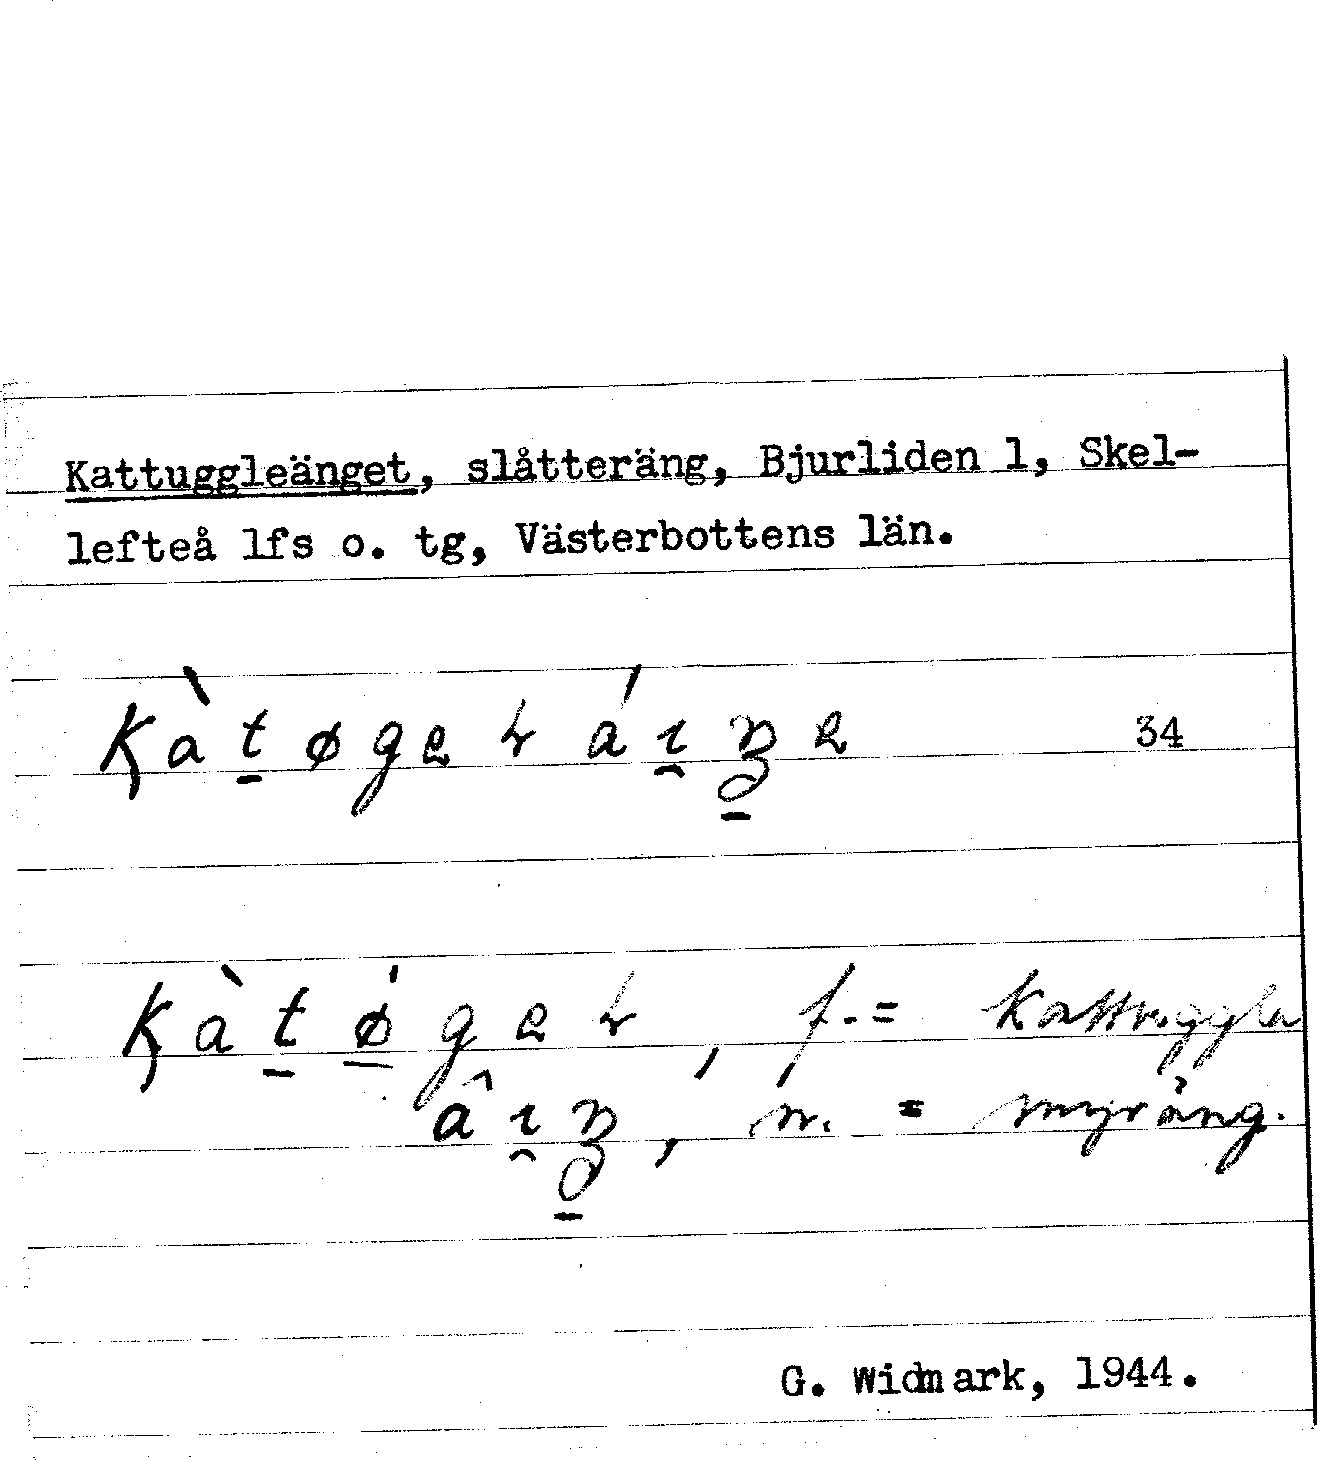 Kattuggleänget, slåtteräng, Bjurliden 1, Skel-
lefteå lfs o. tg, Västerbottens län.
34
f. = kattuggla
n. = myräng.
G. Widmark, 1944.